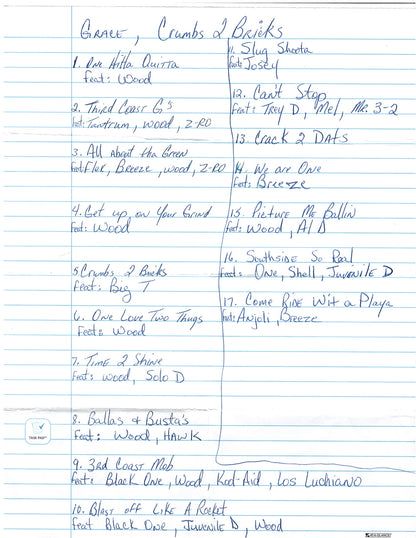 Grace, Crumbs 2 Bricks
1. One Hitta Quitta
feat: Wood
2. Third Coast G's
feat: Tantrum, wood, Z-RO
3. All About tha Green
feat: Flex, Breeze, wood, Z-RO
4. Get up, on Your Grind
feat: Wood
5 Crumbs 2 Bricks
feat: Big T
6. One Love Two Thugs
feat: Wood
7. Time 2 Shine
feat: wood, Solo D
8. Ballas & Busta's
feat: Wood, HAWK
9. 3rd Coast Mob
feat: Black One, Wood, Kool-Aid, Los Luchiano
10. Blast off Like A Rocket
feat Black One, Juvenile D, Wood
11. Slug Shoota
feat: Josey
12. Can't Stop
feat: Trey D, Mel, Mr. 3-2
13. Crack 2 Dats
14. We are One
feat: Breeze
15. Picture Me Ballin
feat: Wood, Al D
16. Southside So Real
feat: One, Shell, Juvenile D
17. Come Ride Wit a Playa
feat: Anjoli, Breeze
TASK PAD